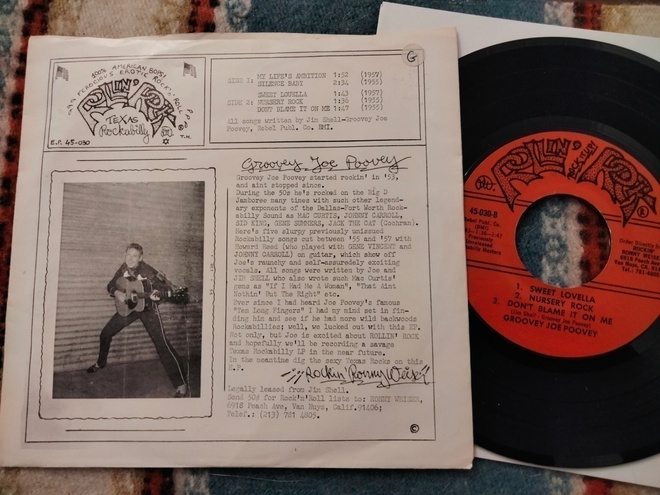 G
100% AMERICAN BOPS!
FEROCIOUS EROTIC ROCK 'N' ROLL
ROLLIN' ROCK
TEXAS
Rockabilly
E.P. 45-030
T.M.
SIDE 1: MY LIFE'S AMBITION 1:52 (1957)
SILENCE BABY 2:34 (1955)
SWEET LOVELLA 1:43 (1957)
SIDE 2: NURSERY ROCK 1:36 (1955)
DONT BLAME IT ON ME 1:47 (1955)
All songs written by Jim Shell-Groovey Joe
Poovey, Hebel Publ. Co. BMI.
Groovey Joe Poovey
Groovey Joe Poovey started rockin' in '53,
and aint stopped since.
During the 50s he's rocked on the Big D
Jamboree many times with such other legend-
ary exponents of the Dallas-Fort Worth Rock-
abilly Sound as MAC CURTIS, JOHNNY CARROLL,
SID KING, GENE SUMMERS, JACK THE CAT (Cochran).
Here's five slurpy previously unissued
Rockabilly songs cut between '55 and '57 with
Howard Reed (who played with GENE VINCENT and
JOHNNY CARROLL) on guitar, which show off
Joe's raunchy and self-assuredely exciting
vocals. All songs were written by Joe and
JIM SHELL who also wrote such Mac Curtis'
gems as "If I Had Me A Woman", "That Aint
Nothin' But The Right" etc.
Ever since I had heard Joe Poovey's famous
"Ten Long Fingers" I had my mind set in fin-
ding him and see if he had more wild backwoods
Rockabillies; well, we lucked out with this EP.
Not only, but Joe is excited about ROLLIN' ROCK
and hopefully we'll be recording a savage
Texas Rockabilly LP in the near future.
In the meantime dig the sexy Texas Rocks on this
E.P.
Rockin' Ronny Weiser
Legally leased from Jim Shell.
Send 50¢ for Rock'n'Roll lists to: RONNY WEISER,
6918 Peach Ave, Van Nuys, Calif.91406;
Telef.: (213) 781 4805.
©
ROLLIN' ROCK
45-030-B
1. SWEET LOVELLA
2. NURSERY ROCK
3. DON'T BLAME IT ON ME
(Jim Shell - Groovey Joe Poovey)
GROOVEY JOE POOVEY